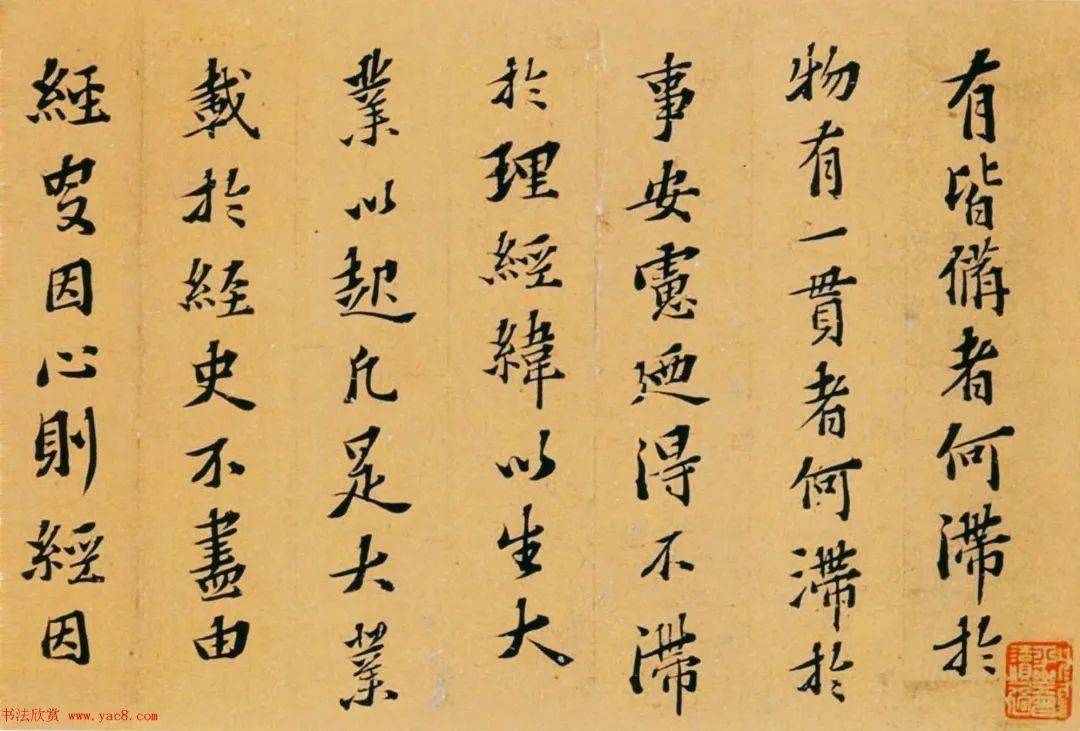 有皆備者何滯於
物有一貫者何滯於
事安慮迺得不滯
於理經緯以生大
業以起凡是大業
載於經史不盡由
經叓因心則經因
书法欣赏 www.yac8.com